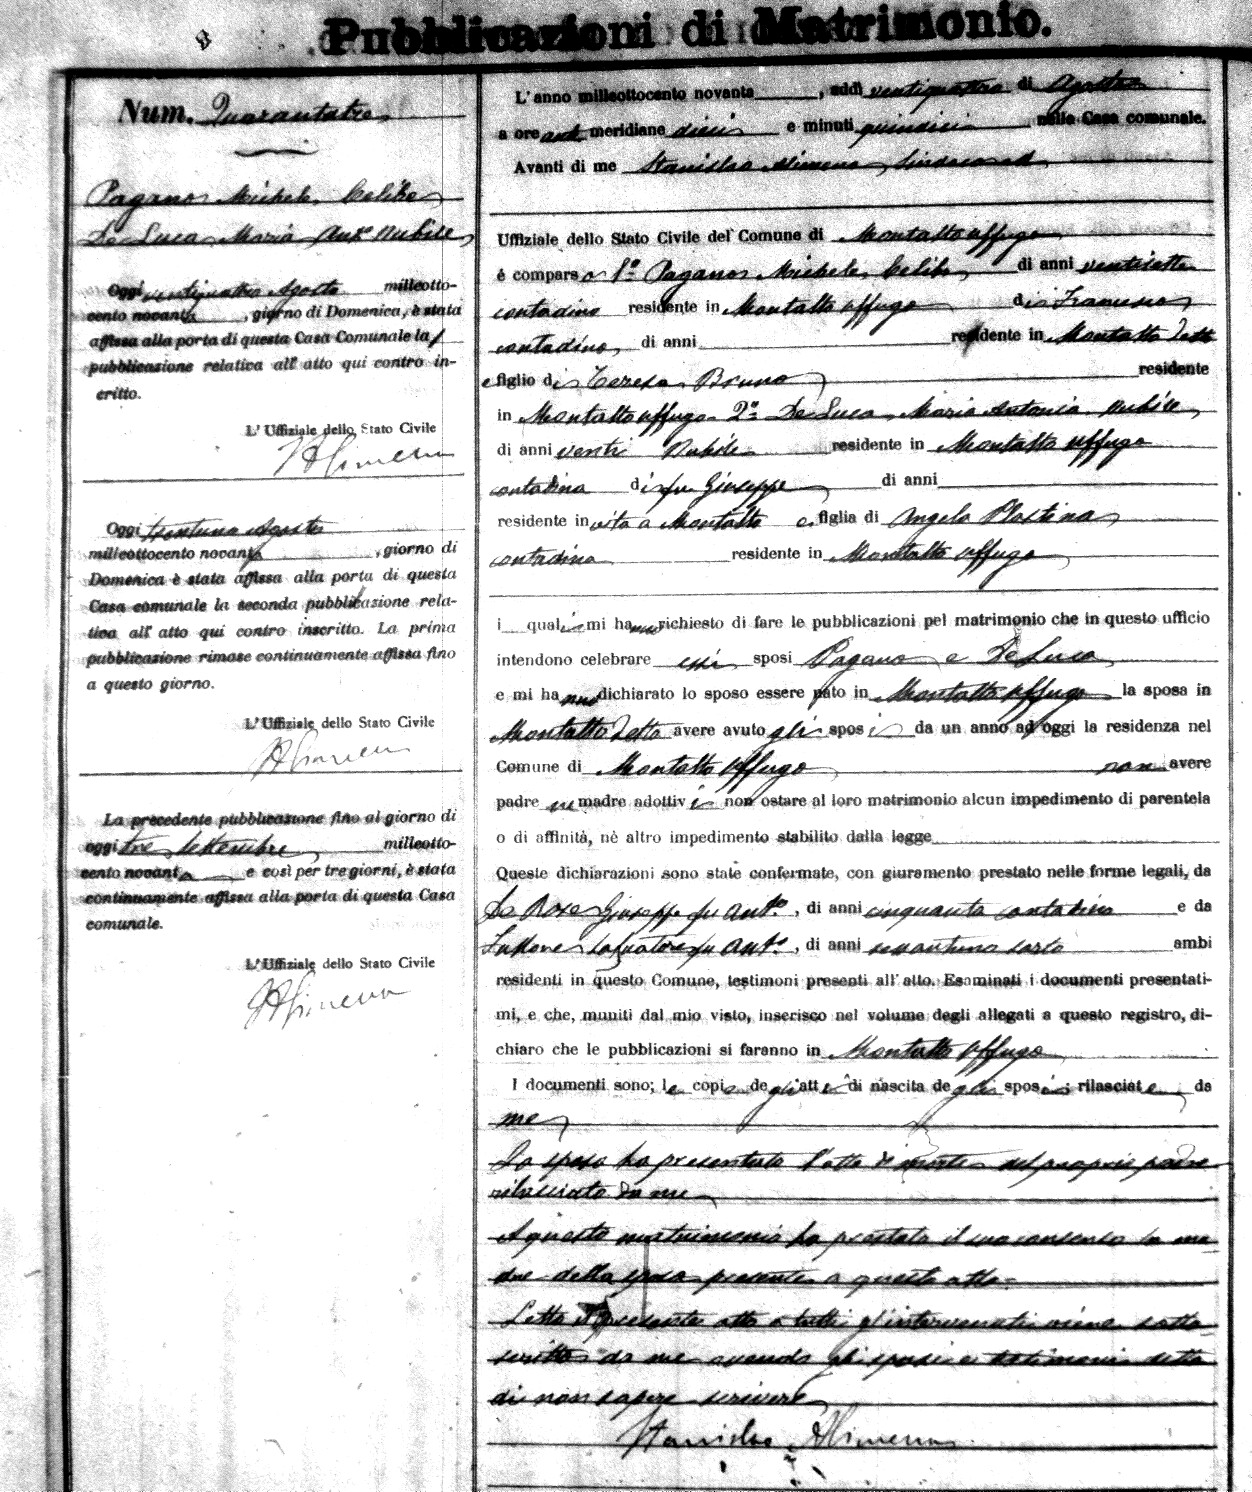 Pubblicazioni di Matrimonio.
Num. Quarantatre
Pagano Michele Celibe
De Luca Maria Anta Nubile
Oggi ventiquattro Agosto milleotto-
cento novanta, giorno di Domenica, è stata
affissa alla porta di questa Casa Comunale la
pubblicazione relativa all' atto qui contro in-
critto.
L' Uffiziale dello Stato Civile
SAlimena
Oggi trentuno Agosto
milleottocento novanta, giorno di
Domenica è stata affissa alla porta di questa
Casa comunale la seconda pubblicazione rela-
tiva all' atto qui contro inscritto. La prima
pubblicazione rimase continuamente affissa fino
a questo giorno.
L' Uffiziale dello Stato Civile
SAlimena
La precedente pubblicazione fino al giorno di
oggi tre Settembre milleotto-
cento novanta e così per tre giorni, è stata
continuamente affissa alla porta di questa Casa
comunale.
L' Uffiziale dello Stato Civile
SAlimena
L' anno milleottocento novanta, addì ventiquattro di Agosto
a ore ante meridiane dieci e minuti quindici nella Casa comunale.
Avanti di me Stanislao Alimena Sindaco ed
Uffiziale dello Stato Civile del Comune di Montalto Uffugo
è comparso 1° Pagano Michele Celibe di anni ventisette
contadino residente in Montalto Uffugo di Francesco
contadino, di anni residente in Montalto detto
e figlio di Teresa Bruno residente
in Montalto Uffugo 2° De Luca Maria Antonia nubile
di anni venti Nubile residente in Montalto Uffugo
contadina di fu Giuseppe di anni
residente in vita a Montalto e figlia di Angela Plastina
contadina residente in Montalto Uffugo
i quali mi hanno richiesto di fare le pubblicazioni pel matrimonio che in questo ufficio
intendono celebrare essi sposi Pagano e De Luca
e mi hanno dichiarato lo sposo essere nato in Montalto Uffugo la sposa in
Montalto detto avere avuto gli sposi da un anno ad oggi la residenza nel
Comune di Montalto Uffugo non avere
padre ne madre adottivi non ostare al loro matrimonio alcun impedimento di parentela
o di affinità, nè altro impedimento stabilito dalla legge
Queste dichiarazioni sono state confermate, con giuramento prestato nelle forme legali, da
De Rose Giuseppe fu Anto, di anni cinquanta contadino e da
Salvatore fu Anto, di anni sessantuno sarto ambi
residenti in questo Comune, testimoni presenti all' atto. Esaminati i documenti presentati-
mi, e che, muniti dal mio visto, inserisco nel volume degli allegati a questo registro, di-
chiaro che le pubblicazioni si faranno in Montalto Uffugo
I documenti sono; le copie degli atti di nascita degli sposi rilasciate da
me
La sposa ha presentato l'atto di morte del proprio padre
rilasciato da me
A questo matrimonio ha prestato il suo consenso la ma-
dre della sposa presente a questo atto=
Letto il presente atto a tutti gl'intervenuti viene sotto=
scritto da me avendo gli sposi e testimoni detto
di non sapere scrivere
Stanislao Alimena